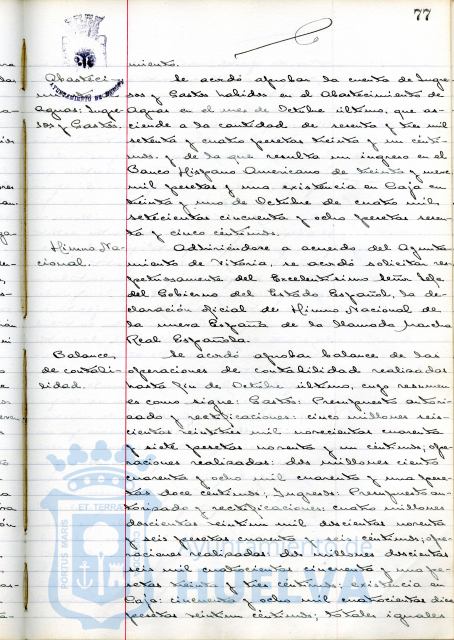 77
AYUNTAMIENTO DE HUELVA
miento.
Abasteci-
miento de
Aguas: Ingre-
sos y Gastos.
Se acordó aprobar la cuenta de Ingre-
sos y Gastos habidos en el Abastecimiento de
Aguas en el mes de Octubre último, que as-
ciende a la cantidad de sesenta y tres mil
setenta y cuatro pesetas treinta y un cénti-
mos, y de la que resulta un ingreso en el
Banco Hispano Americano de treinta y nueve
mil pesetas y una existencia en Caja en
treinta y uno de Octubre de cuatro mil
setecientas cincuenta y ocho pesetas sesen-
ta y cinco céntimos.
Himno Na-
cional.
Adhiriéndose a acuerdo del Ayunta-
miento de Vitoria, se acordó solicitar res-
petuosamente del Excelentísimo Señor Jefe
del Gobierno del Estado Español, la de-
claración oficial de Himno Nacional de
la nueva España de la llamada Marcha
Real Española.
Balance
de contabi-
lidad.
Se acordó aprobar balance de las
operaciones de contabilidad realizadas
hasta fin de Octubre último, cuyo resumen
es como sigue: Gastos: Presupuesto autori-
zado y rectificaciones: cinco millones seis-
cientas veintitrés mil novecientas cuarenta
y siete pesetas noventa y un céntimos; ope-
raciones realizadas: dos millones ciento
cuarenta y ocho mil cuarenta y una pese-
tas doce céntimos; Ingresos: Presupuesto au-
torizado y rectificaciones: cuatro millones
doscientas veintiuna mil doscientas noventa
y seis pesetas noventa y seis céntimos; ope-
raciones realizadas: dos millones doscientas
seis mil cuatrocientas cincuenta y una pe-
setas treinta y tres céntimos; existencia en
Caja: cincuenta y ocho mil cuatrocientas diez
pesetas veintiun céntimos; totales iguales
PORTUS MARIS ET TERRAE
Ayuntamiento de
HUELVA